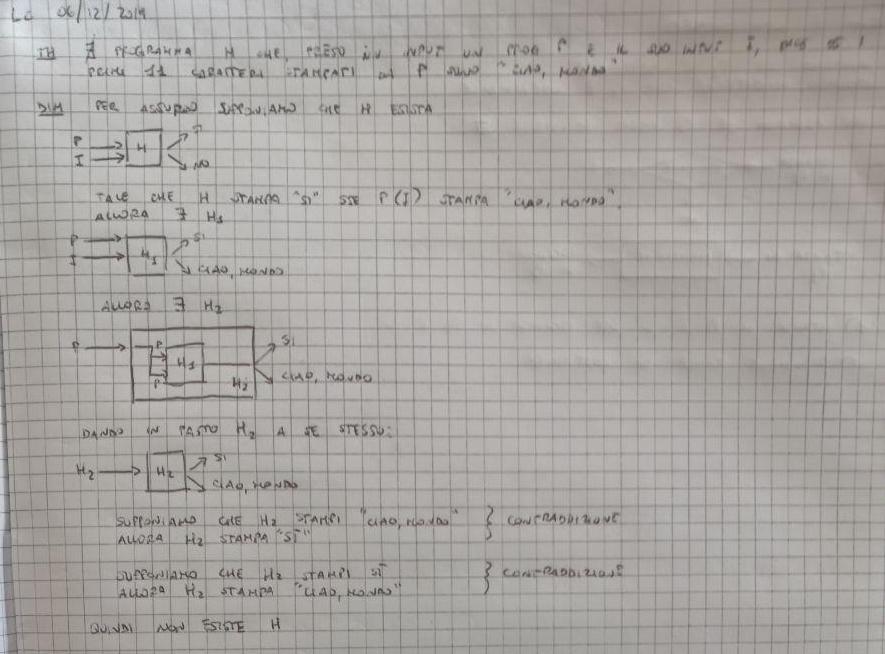 LC 06/12/2019
TH ∄ PROGRAMMA H CHE, PRESO IN INPUT UN PROG P E IL SUO INPUT I, SE I
PRIMI 11 CARATTERI STAMPATI DA P SONO "CIAO, MONDO"
DIM PER ASSURDO SUPPONIAMO CHE H ESISTA
P
I
H
SI
NO
TALE CHE H STAMPA "SI" SSE P(I) STAMPA "CIAO, MONDO".
ALLORA ∃ H1
P
I
H1
SI
CIAO, MONDO
ALLORA ∃ H2
P
P
P
H1
H2
SI
CIAO, MONDO
DANDO IN PASTO H2 A SE STESSO:
H2
H2
SI
CIAO, MONDO
SUPPONIAMO CHE H2 STAMPI "CIAO, MONDO" } CONTRADDIZIONE
ALLORA H2 STAMPA "SI"
SUPPONIAMO CHE H2 STAMPI SI } CONTRADDIZIONE
ALLORA H2 STAMPA "CIAO, MONDO"
QUINDI NON ESISTE H